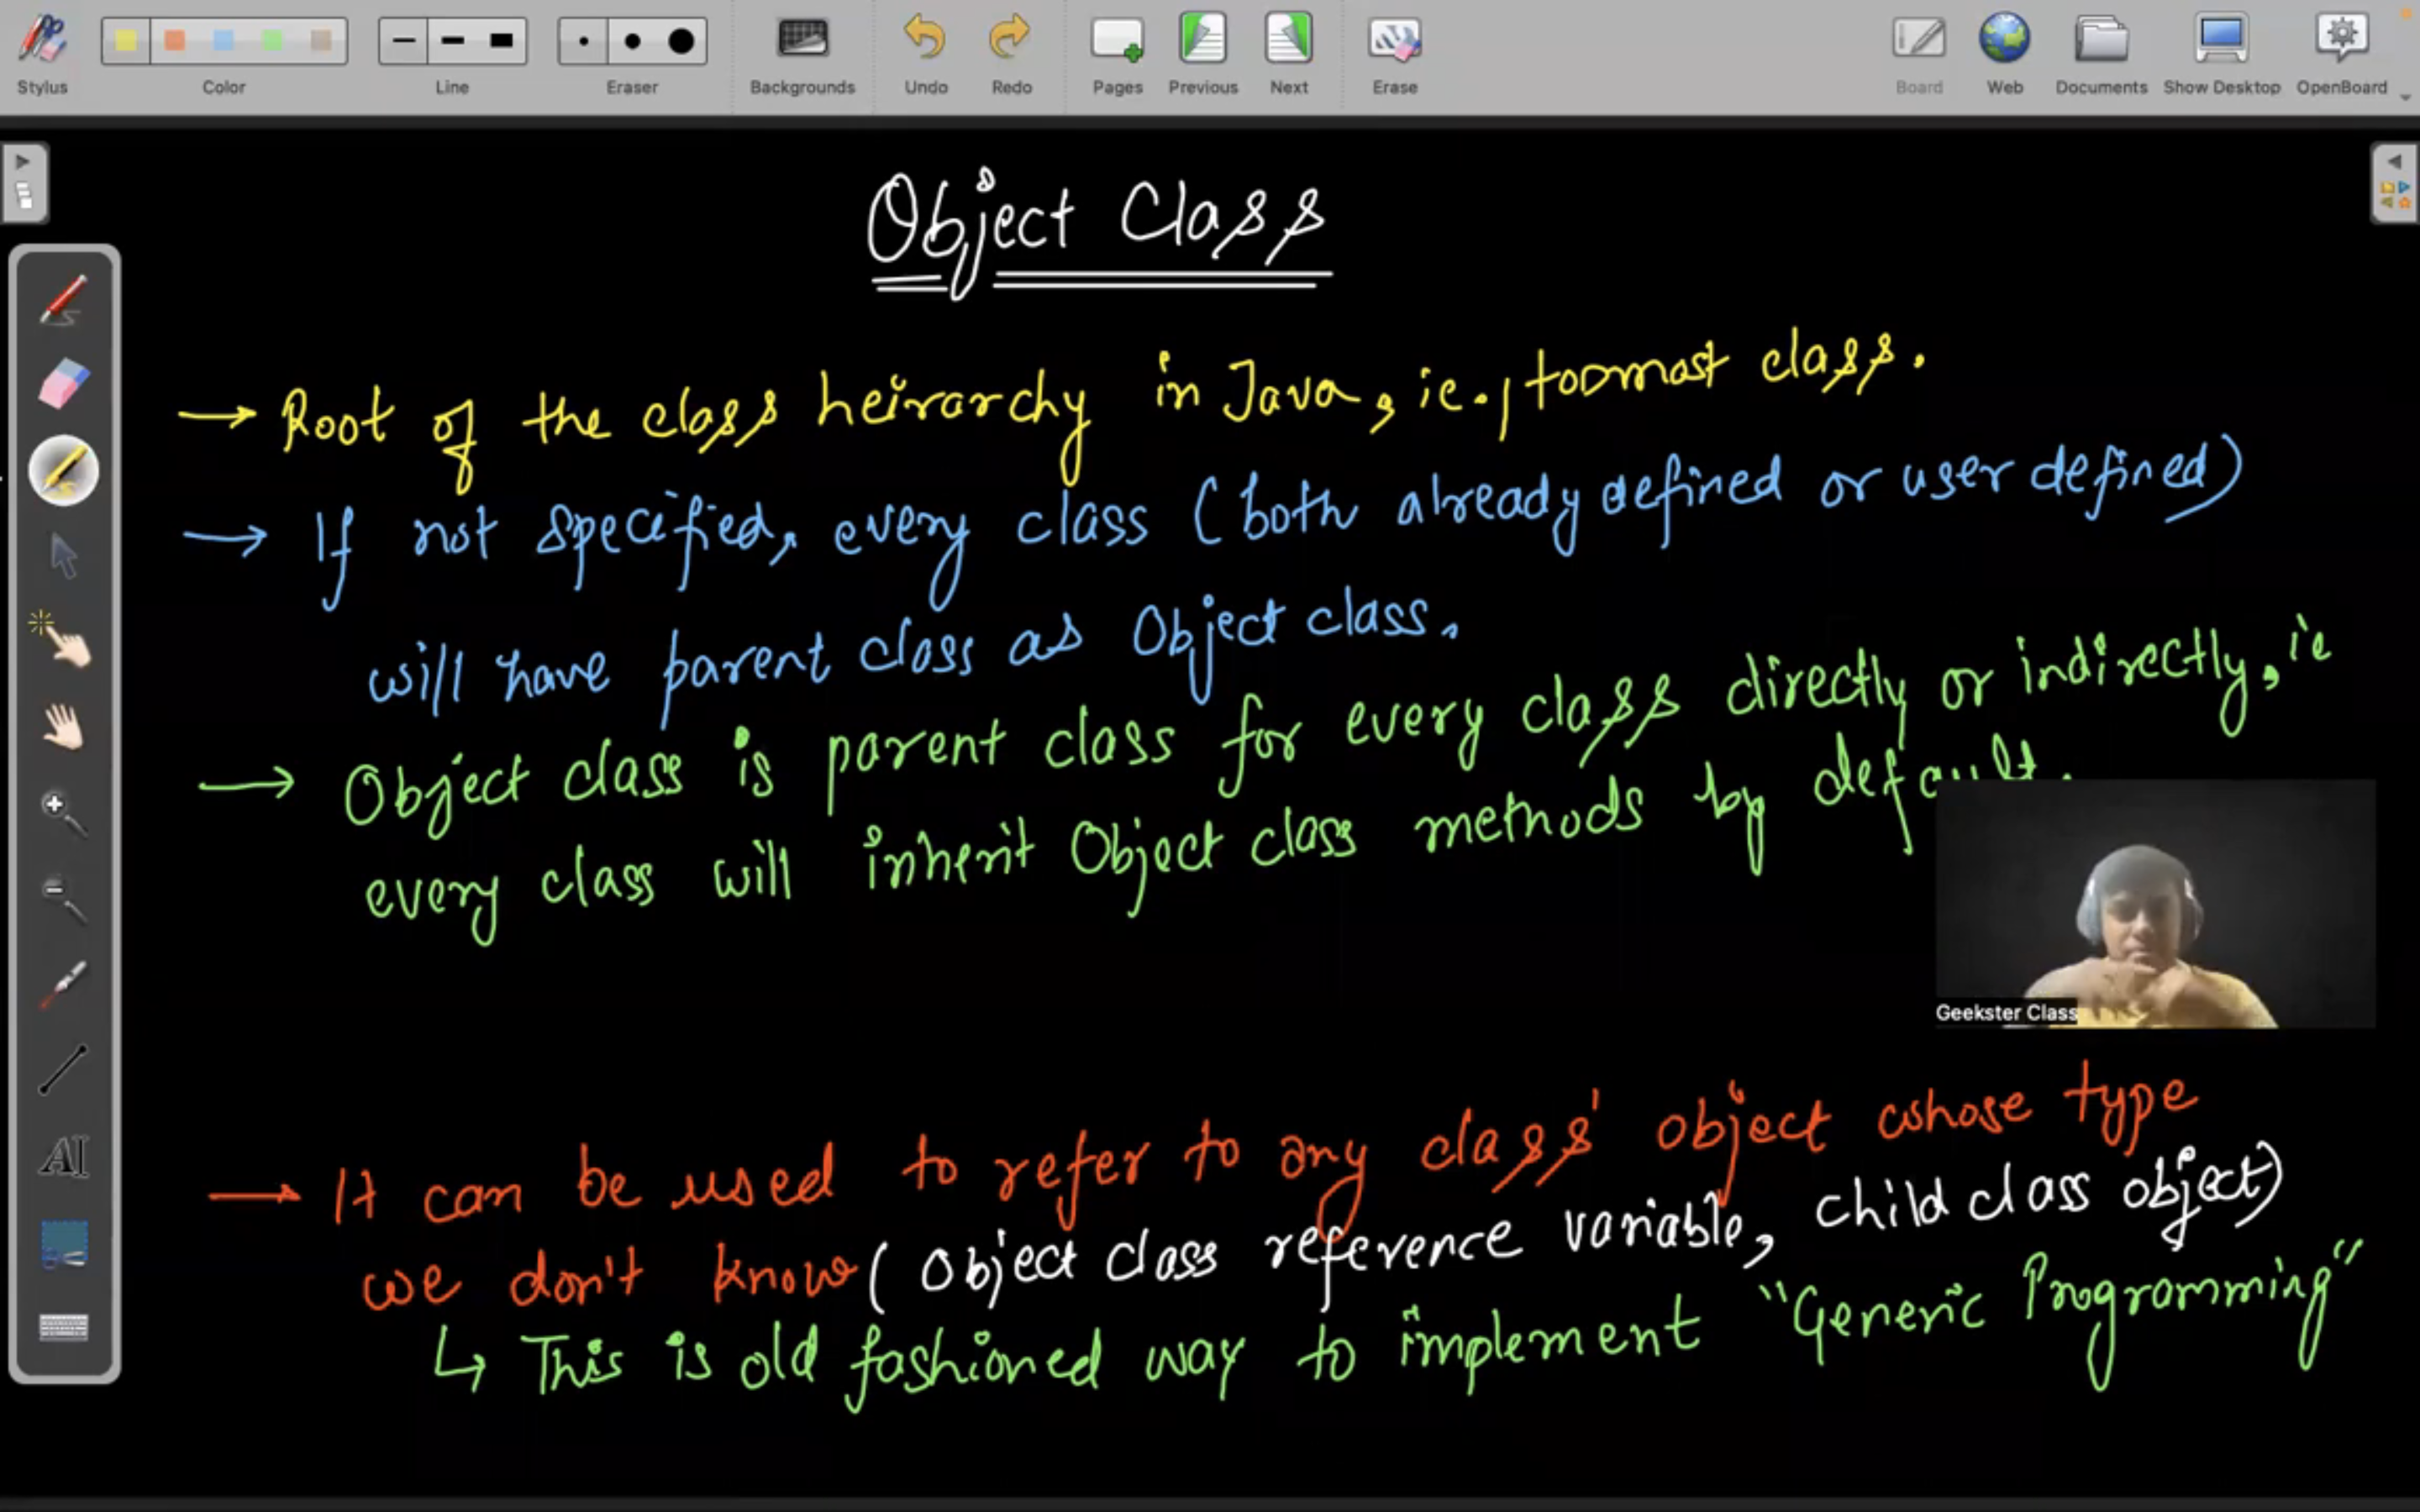 Stylus Color Line Eraser Backgrounds Undo Redo Pages Previous Next Erase Board Web Documents Show Desktop OpenBoard
Object Class
→ Root of the class heirarchy in Java, ie., topmost class.
→ If not specified, every class (both already defined or user defined)
will have parent class as Object class.
→ Object class is parent class for every class directly or indirectly, ie
every class will inherit Object class methods by default.
Geekster Class
AI
→ It can be used to refer to any class' object whose type
we don't know (Object class reference variable, child class object)
↳ This is old fashioned way to implement "Generic Programming"